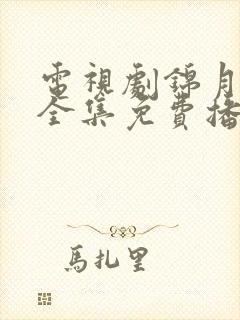 電視劇錦月
全集免費播
馬扎里